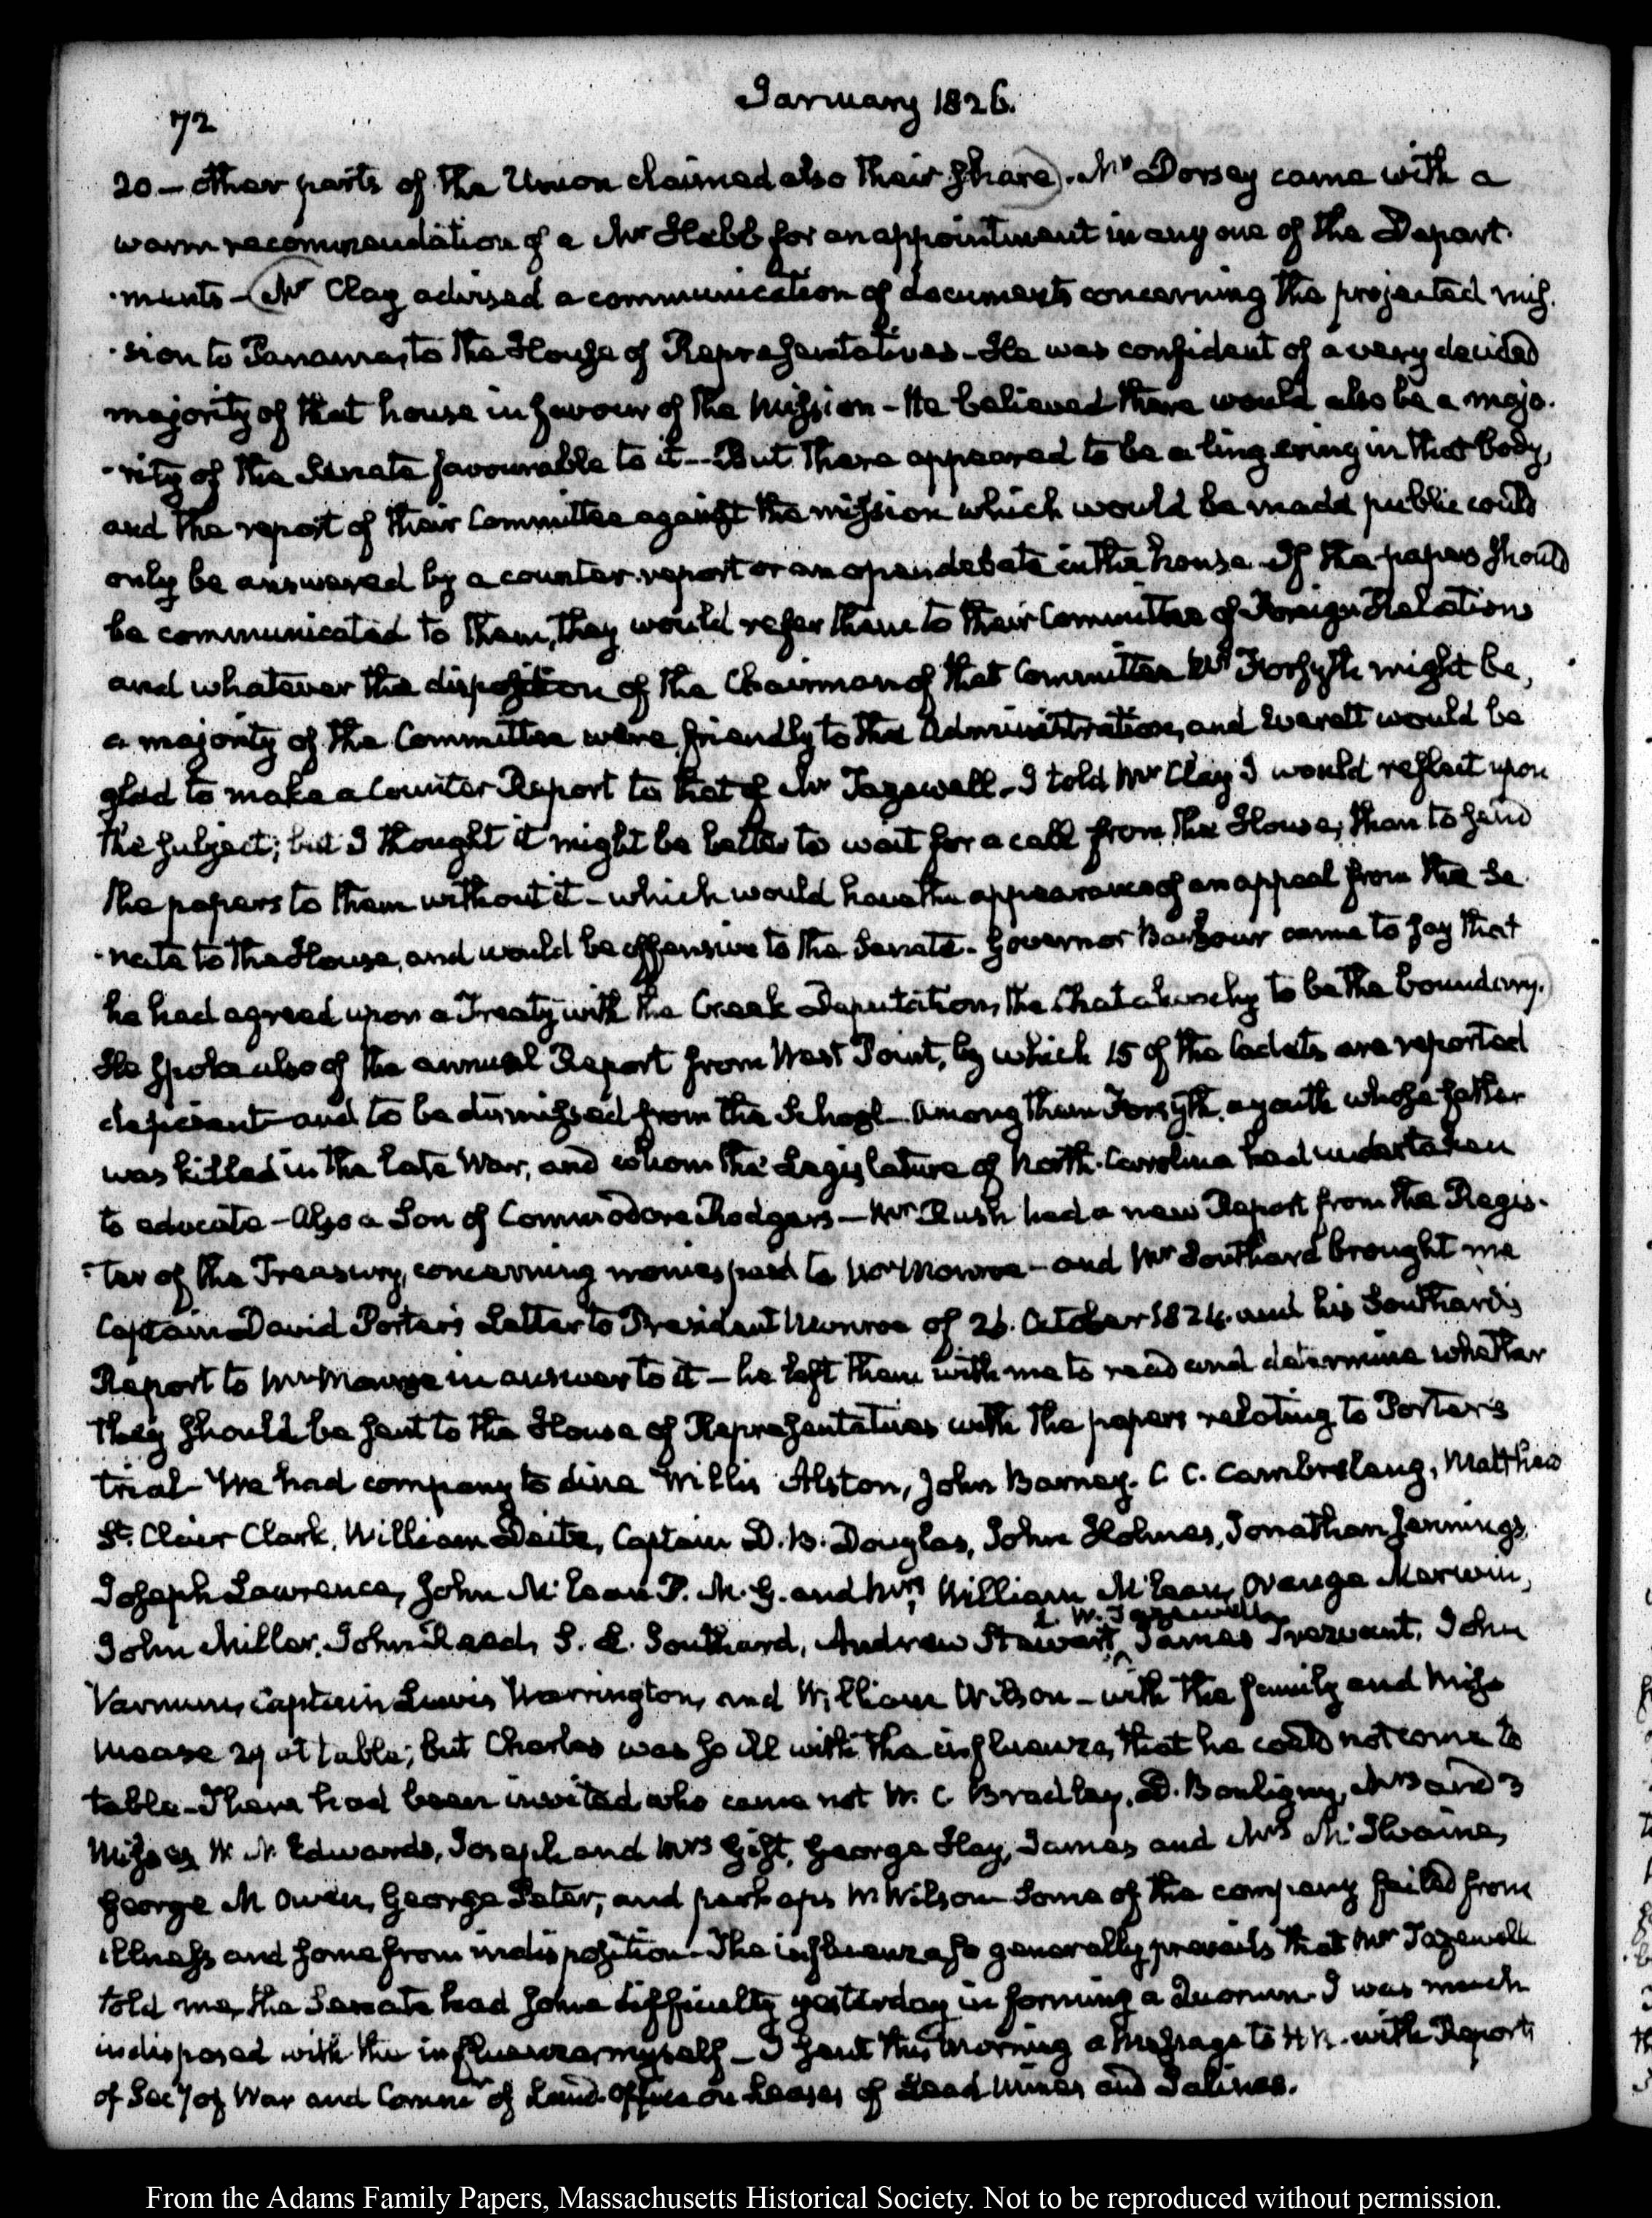 January 1826.
72
20 — other parts of the Union claimed also their share). Mr Dorsey came with a
warm recommendation of a Mr Hebb for an appointment in any one of the Depart-
-ments — (Mr Clay advised a communication of documents concerning the projected mis-
-sion to Panama, to the House of Representatives — He was confident of a very decided
majority of that house in favour of the Mission — He believed there would also be a majo-
-rity of the Senate favourable to it — But there appeared to be a lingering in that body,
and the report of their Committee against the mission which would be made public could
only be answered by a counter-report or an open debate in the house — If the papers should
be communicated to them, they would refer them to their Committee of Foreign Relations
and whatever the disposition of the Chairman of that Committee Mr Forsyth might be,
a majority of the Committee were friendly to the Administration, and Everett would be
glad to make a Counter Report to that of Mr Tazewell. I told Mr Clay I would reflect upon
the subject; but I thought it might be better to wait for a call from the House, than to send
the papers to them without it — which would have the appearance of an appeal from the Se-
-nate to the House, and would be offensive to the Senate. Governor Barbour came to say that
he had agreed upon a Treaty with the Creek Deputation, the Chatahoochy to be the boundary.)
He spoke also of the annual Report from West Point, by which 15 of the Cadets are reported
deficient and to be dismissed from the School — Among them Forsyth, a youth whose father
was killed in the late War, and whom the Legislature of North-Carolina had undertaken
to educate — Also a Son of Commodore Rodgers — Mr Rush had a new Report from the Regis-
-ter of the Treasury, concerning monies paid to Mr Monroe — and Mr Southard brought me
Captain David Porter's Letter to President Monroe of 26. October 1824. and his Southard's
Report to Mr Monroe in answer to it — he left them with me to read and determine whether
they should be sent to the House of Representatives with the papers relating to Porter's
trial — We had company to dine Willis Alston, John Barney. C C. Cambreleng, Matthew
St. Clair Clark, William Deitz, Captain D. B. Douglas, John Holmes, Jonathan Jennings,
Joseph Lawrence, John McLean P. M. G. and Mrs, William McLean, Orange Merwin,
L. W. Tazewell
John Miller, John Reed, S. L. Southard, Andrew Stewart, ^ James Trezvant, John
Varnum, Captain Lewis Warrington, and William Wilson — with the family and Miss
Mease 24 at table; but Charles was so ill with the influenza, that he could not come to
table — There had been invited who came not W. C Bradley, D. Bouligny, Mrs and 3
Misses, W. N. Edwards, Joseph and Mrs Gist, George Hay, James and Mrs McIlvaine,
George M Owen, George Peter, and perhaps Wilson Some of the company failed from
illness and some from indisposition — The influenza so generally prevails that Mr Tazewell
told me, the Senate had some difficulty yesterday in forming a Quorum — I was much
indisposed with the influenza myself — I sent this morning a Message to H R. with Reports
of Secy of War and Commr of Land-Office on Leases of Lead Mines and Salines.
From the Adams Family Papers, Massachusetts Historical Society. Not to be reproduced without permission.